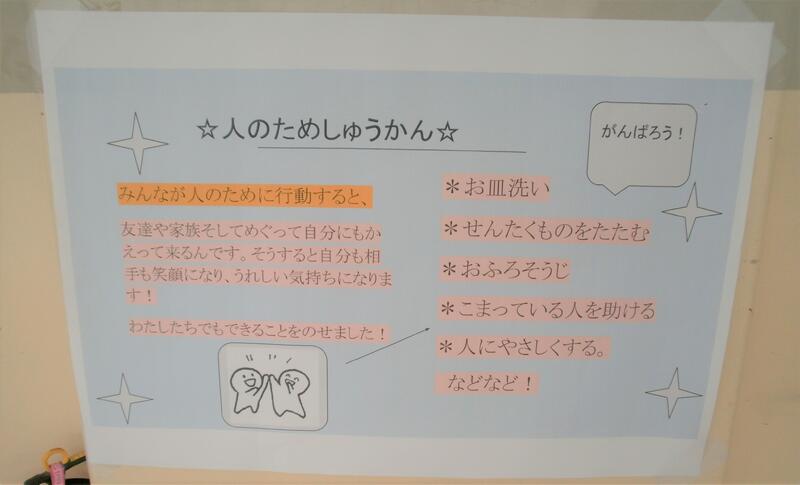 ☆人のためしゅうかん☆
がんばろう！
みんなが人のために行動すると、
友達や家族そしてめぐって自分にもか
えって来るんです。そうすると自分も相
手も笑顔になり、うれしい気持ちになりま
す！
わたしたちでもできることをのせました！
＊お皿洗い
＊せんたくものをたたむ
＊おふろそうじ
＊こまっている人を助ける
＊人にやさしくする。
などなど！